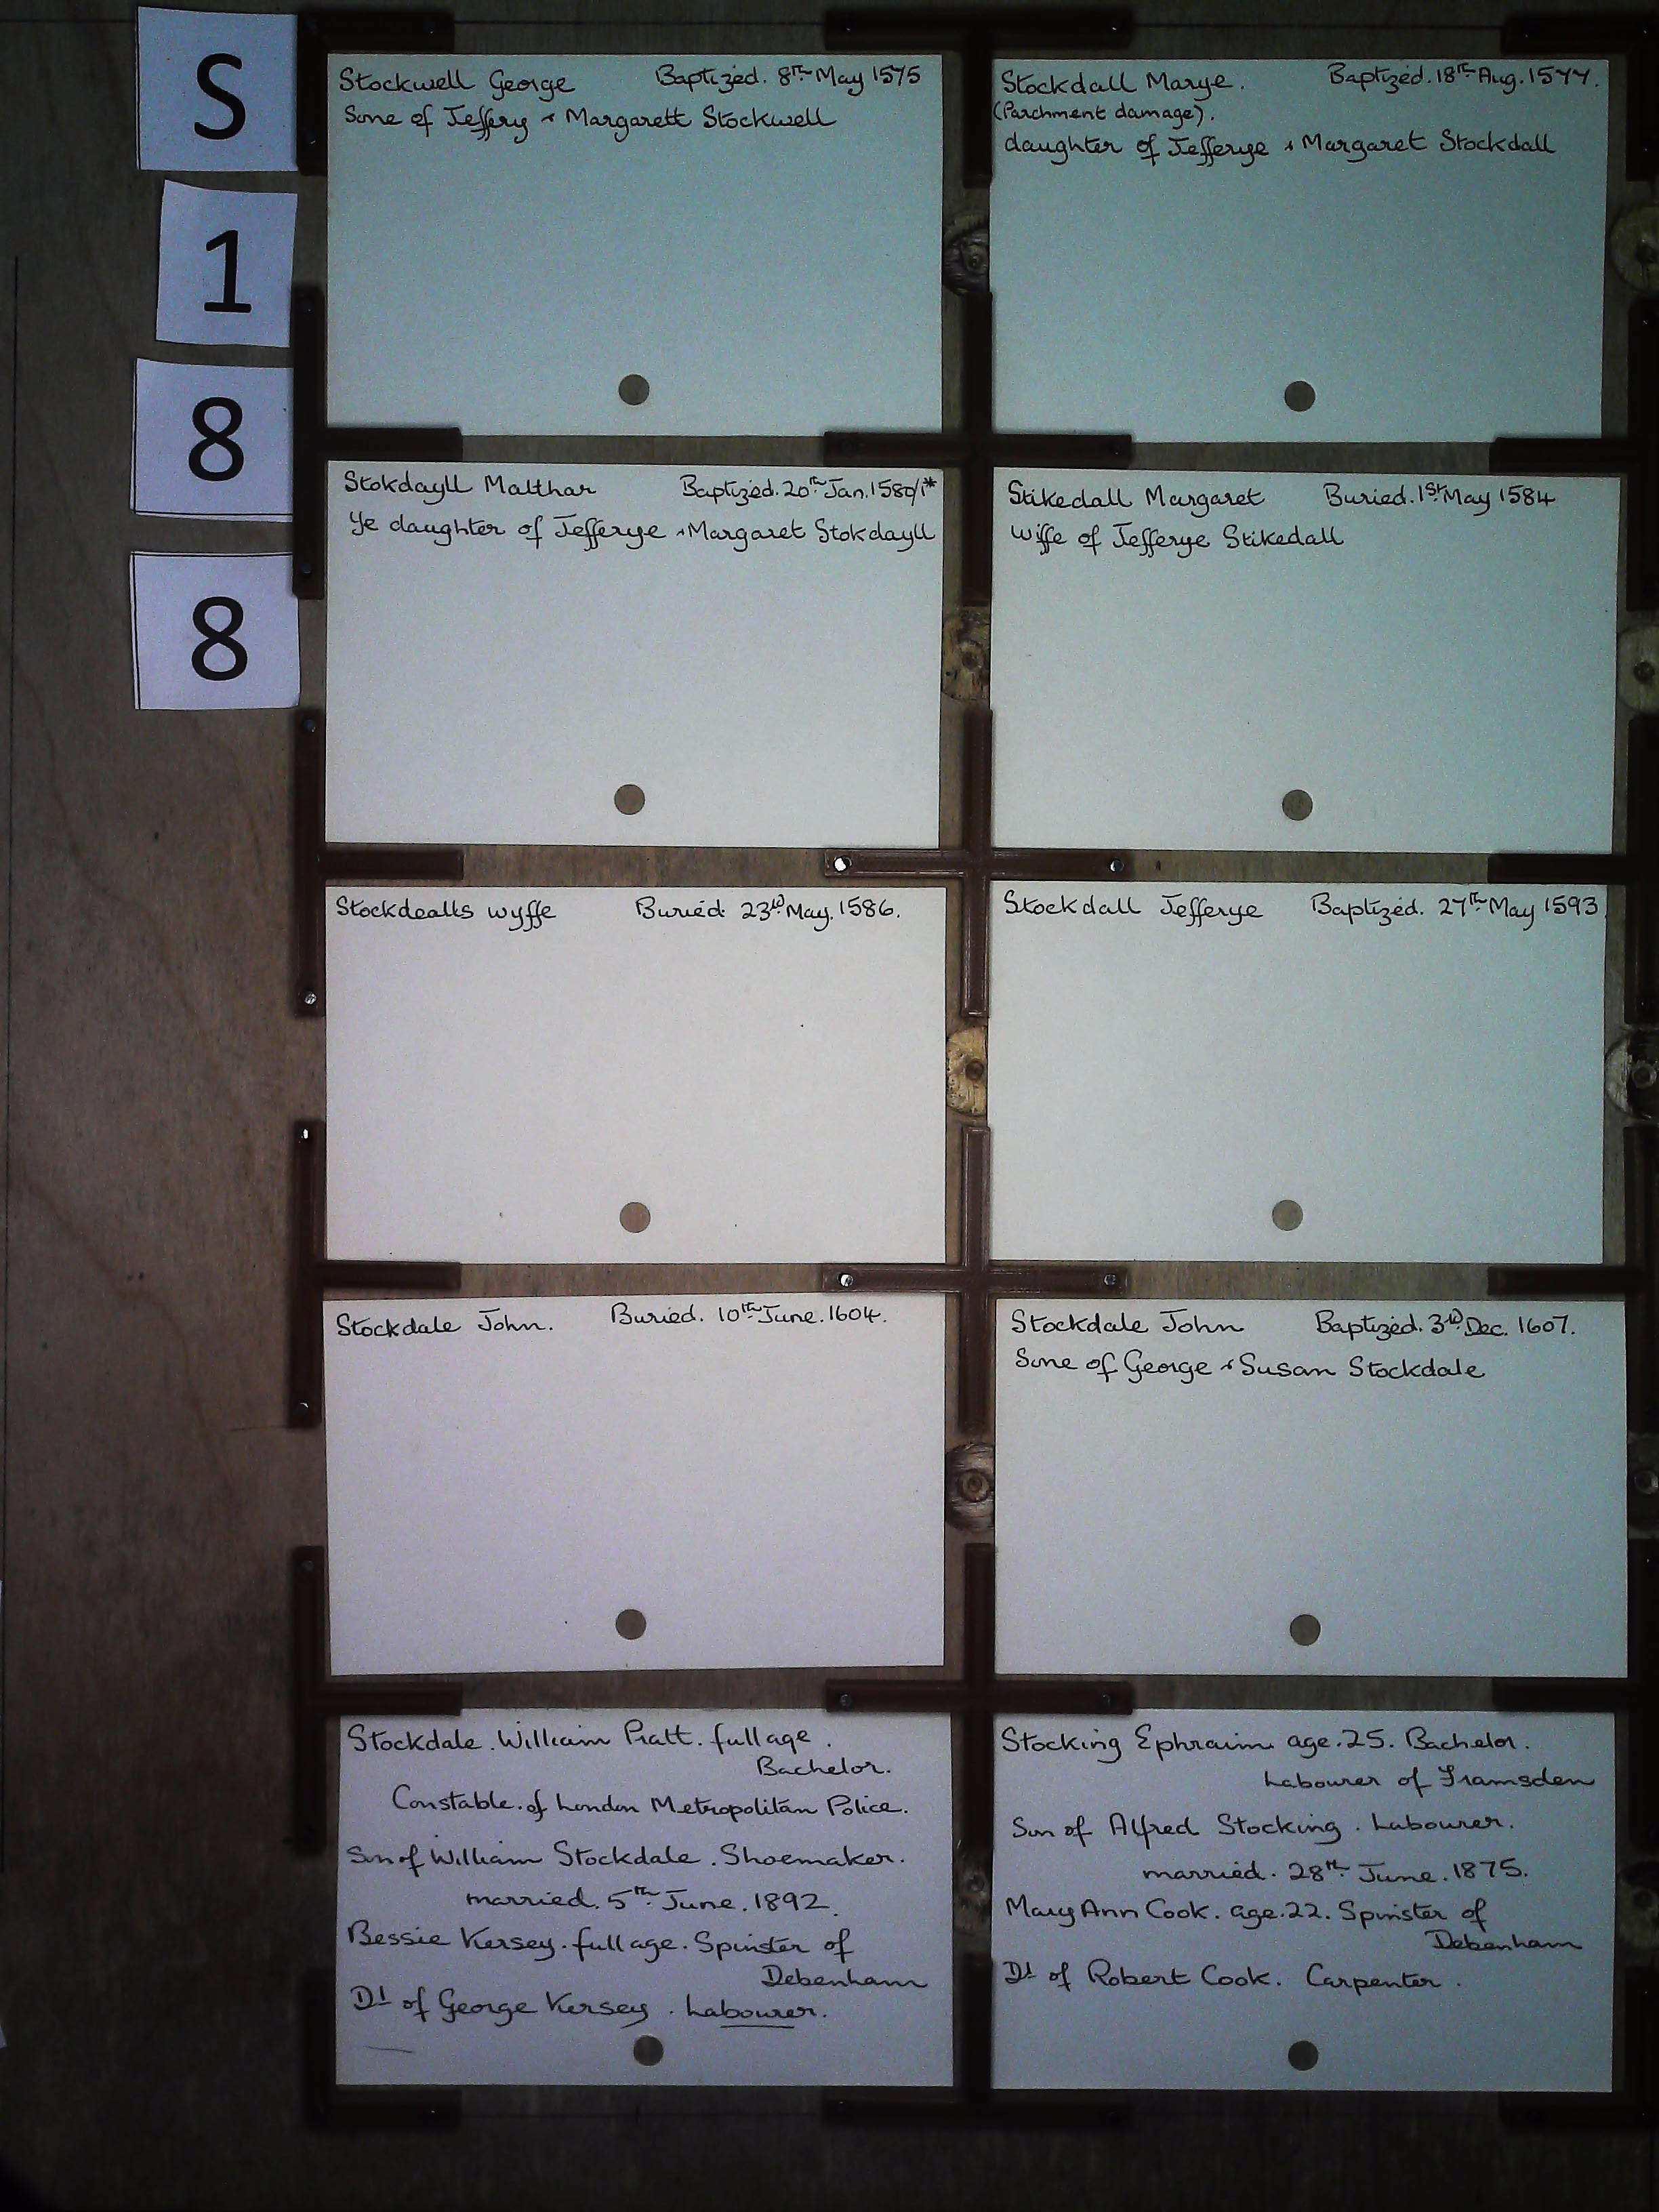 S
1
8
8
Stockwell George Baptized. 8th May 1575
Sone of Jeffery & Margarett Stockwell
Stockdall Marye. Baptized. 18th Aug. 1577.
(Parchment damage).
daughter of Jefferye & Margaret Stockdall
Stokdayll Malthar Baptized. 20th Jan. 1580/1*
Ye daughter of Jefferye & Margaret Stokdayll
Stikedall Margaret Buried. 1st May 1584
wiffe of Jefferye Stikedall
Stockdealls wyffe Buried 23rd May. 1586.
Stockdall Jefferye Baptized. 27th May 1593
Stockdale John. Buried. 10th June. 1604.
Stockdale John Baptized. 3rd Dec. 1607.
Sone of George & Susan Stockdale
Stockdale. William Pratt. full age.
Bachelor.
Constable. of London Metropolitan Police.
Son of William Stockdale. Shoemaker.
married. 5th June. 1892.
Bessie Kersey. full age. Spinster of
Debenham
Dt of George Kersey. Labourer.
Stocking Ephraim age. 25. Bachelor.
Labourer of Framsden
Son of Alfred Stocking. Labourer.
married. 28th June. 1875.
Mary Ann Cook. age. 22. Spinster of
Debenham
Dt of Robert Cook. Carpenter.